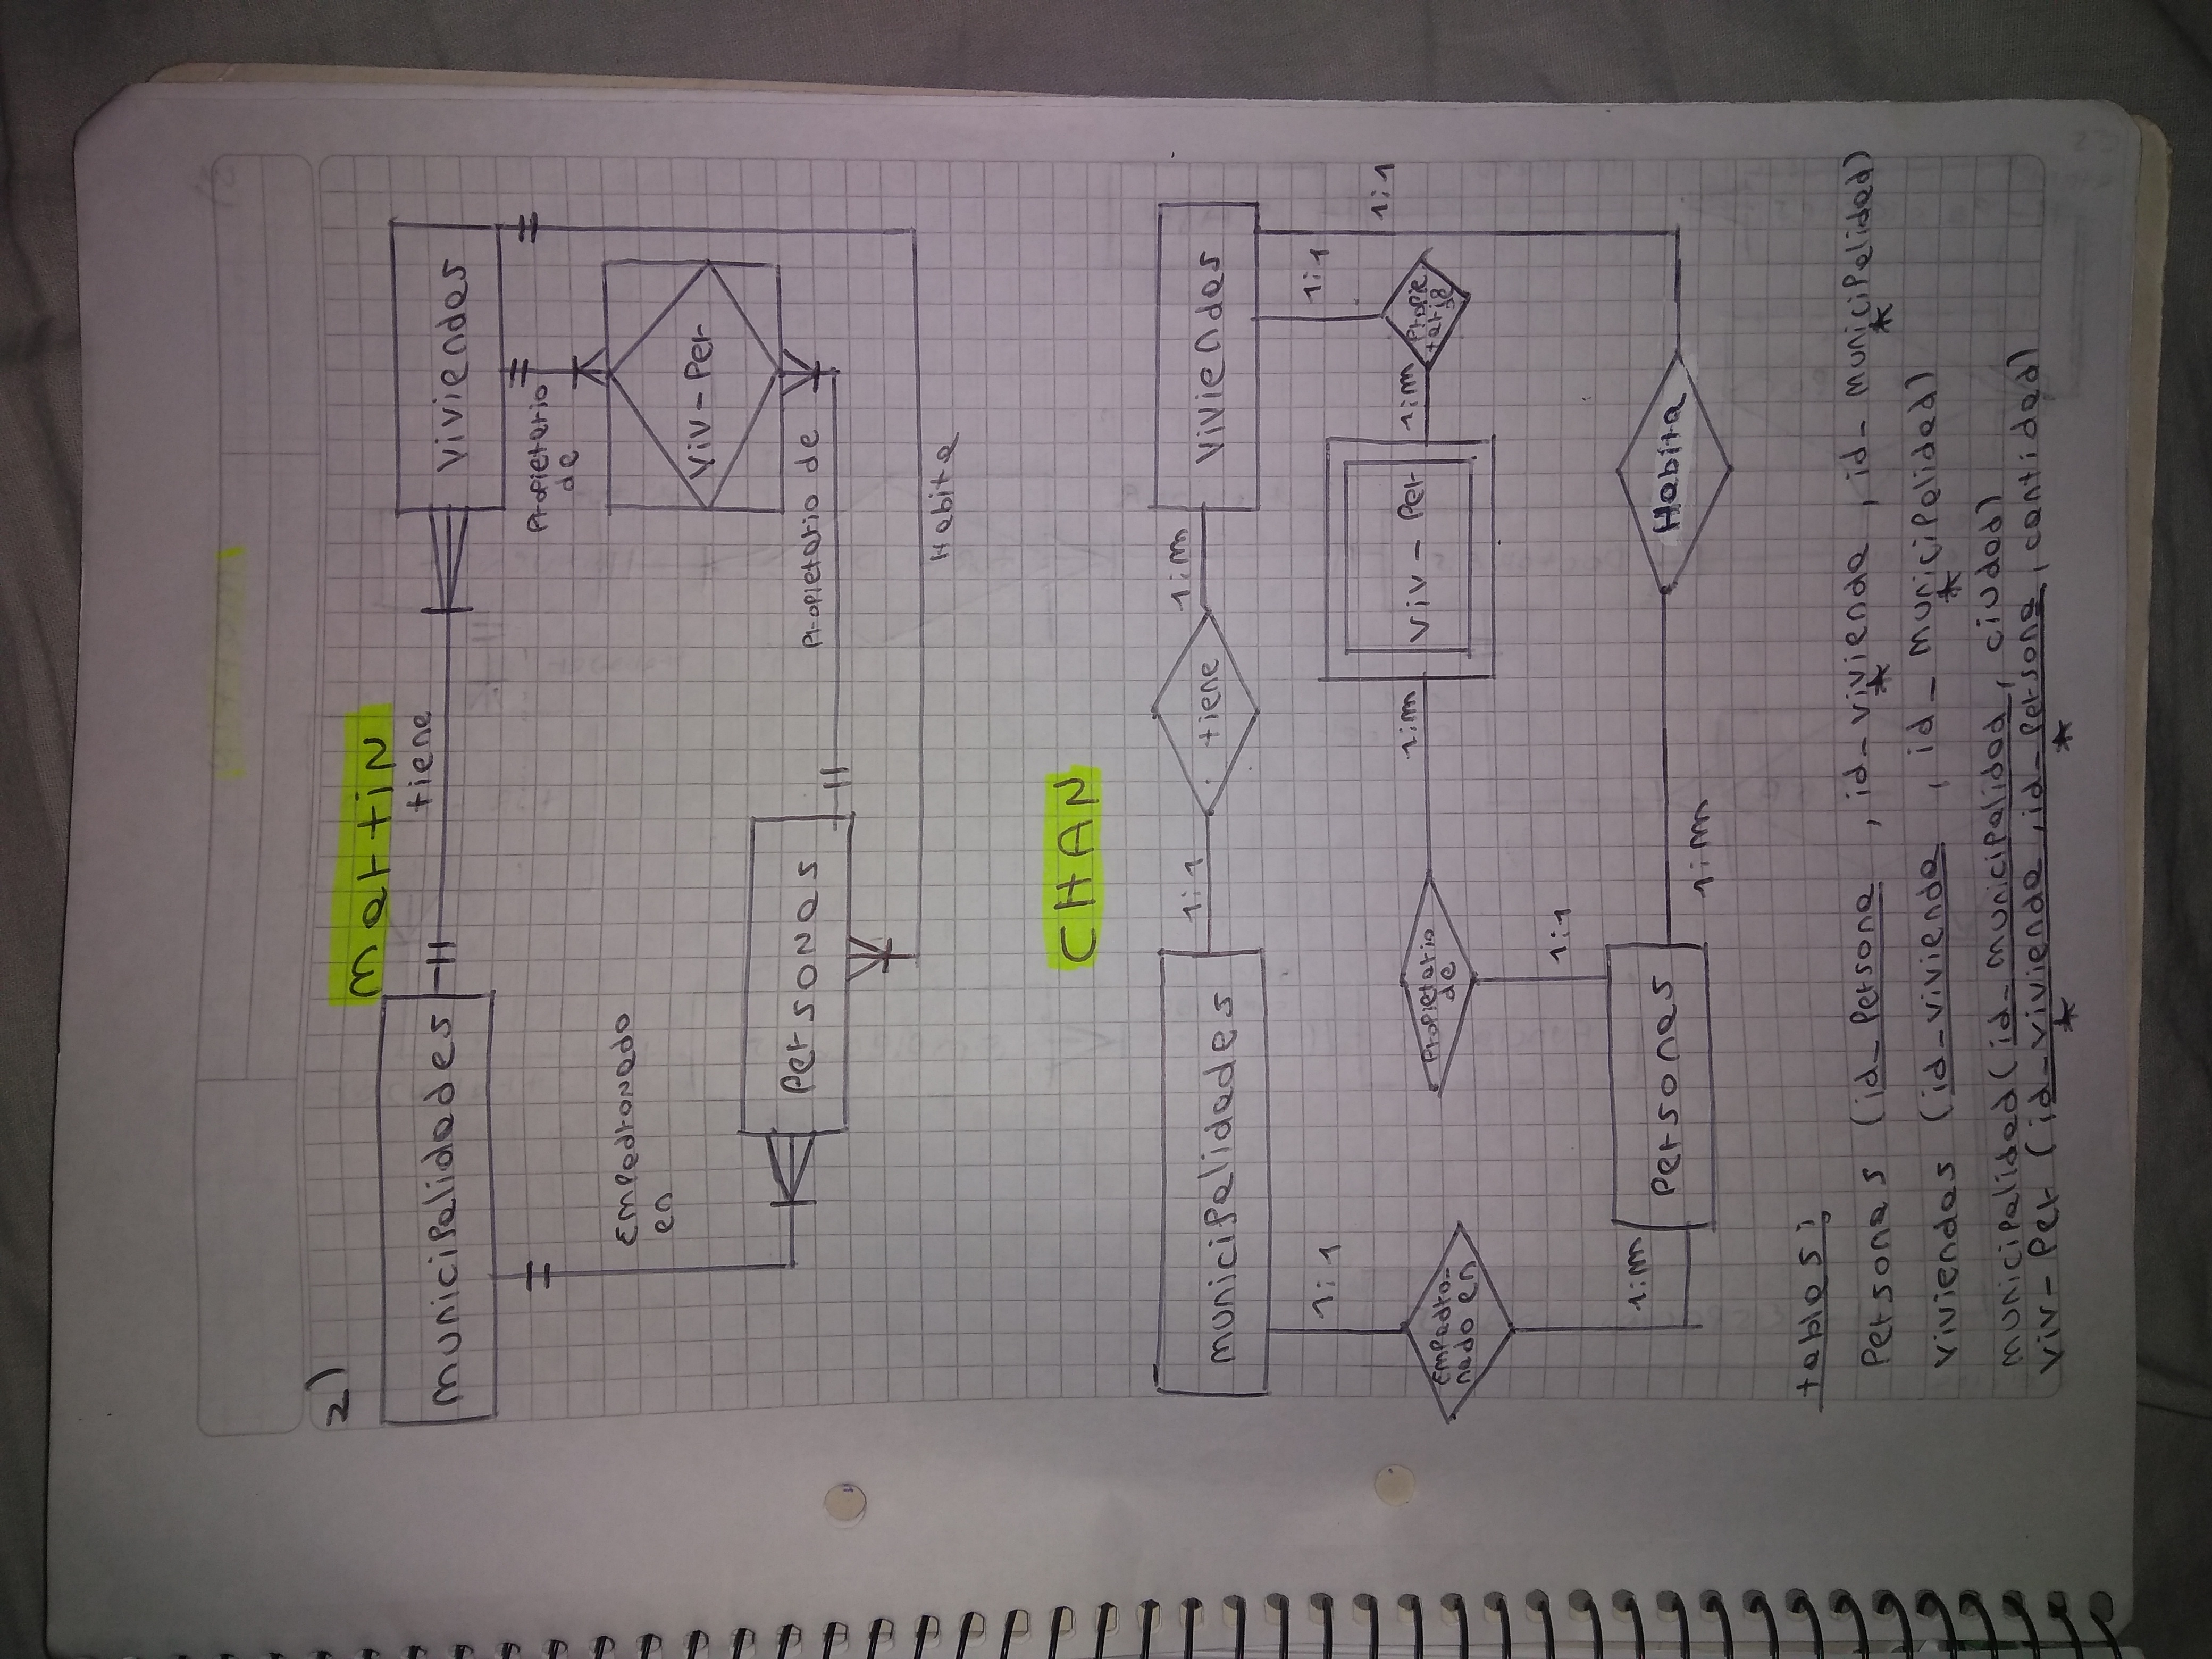 2)
Martin
Municipalidades
tiene
Viviendas
Propietario
de
Empadronado
en
Viv-Per
Personas
Propietario de
Habita
CHAN
Municipalidades
1:1
tiene
1:m
Viviendas
1:1
1:1
1:1
Empadro-
nado en
Propietario
de
1:m
Viv-Per
1:m
Propie
tario
de
1:1
1:m
Personas
1:m
Habita
tablas:
Personas (id_Persona, id_vivienda, id_municipalidad)
* *
Viviendas (id_vivienda, id_municipalidad)
*
Municipalidad (id_municipalidad, ciudad)
Viv-Per (id_vivienda, id_Persona, cantidad)
* *